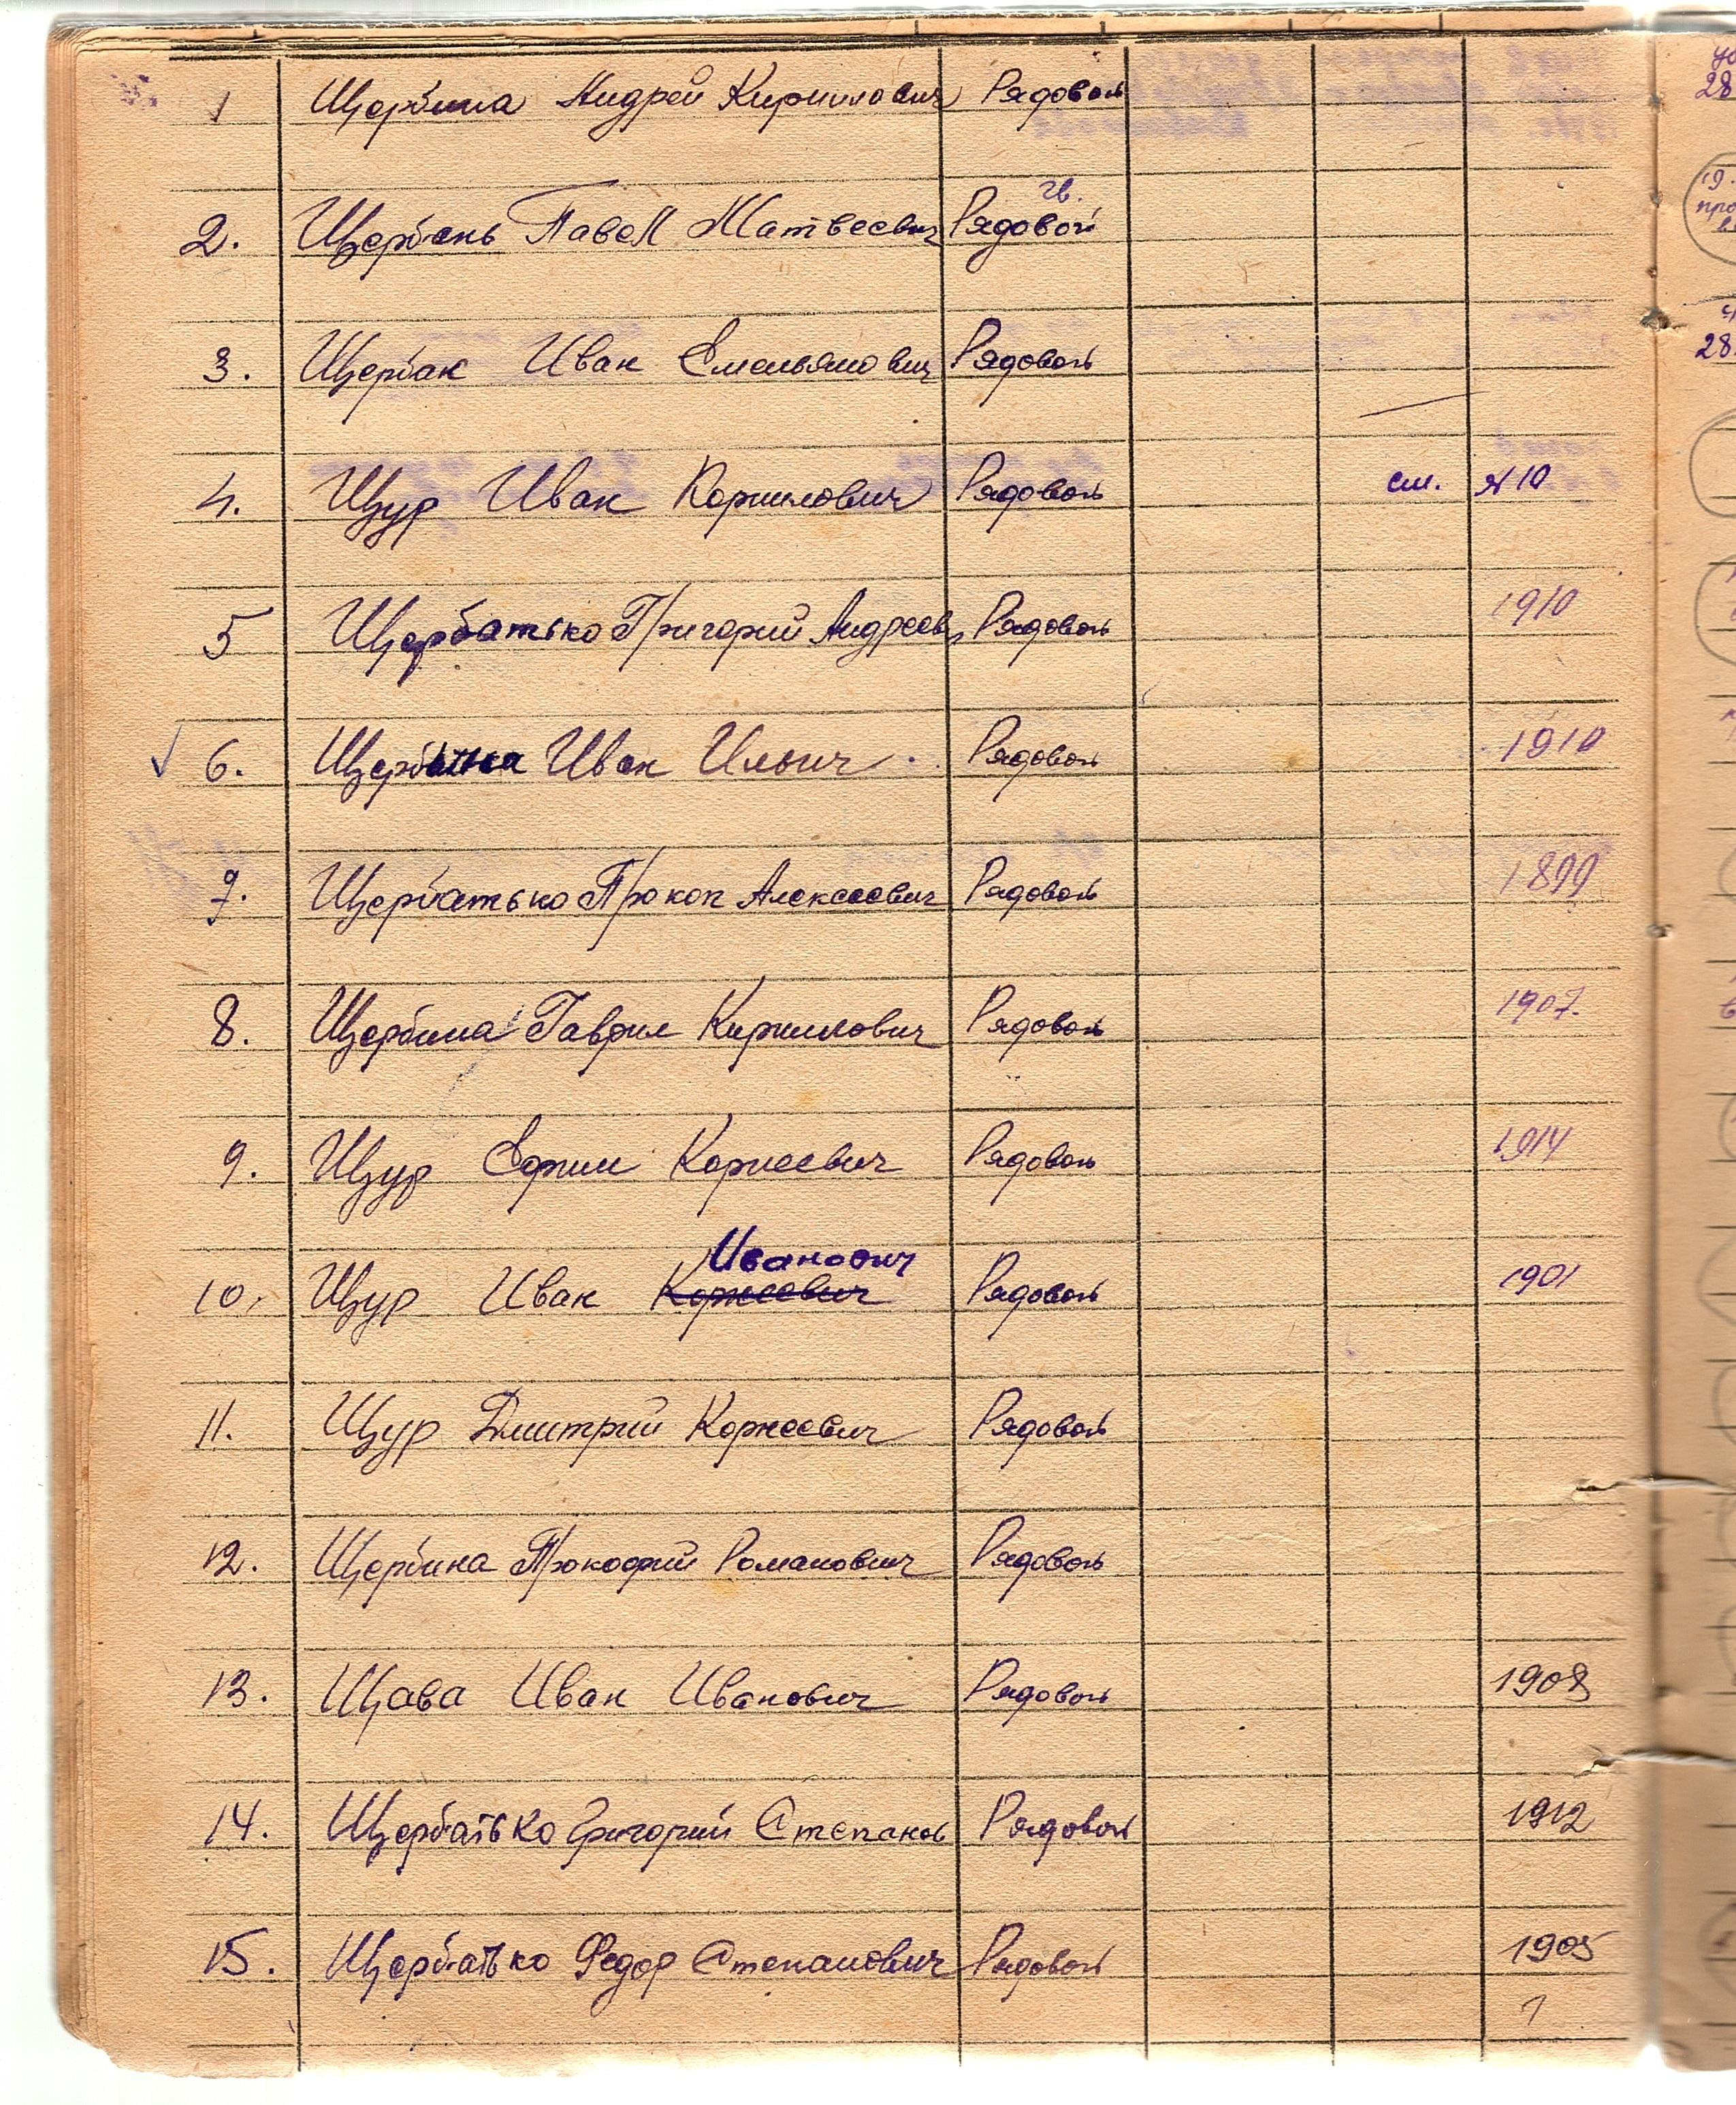 1 Щербина Андрей Кириллович Рядовой
гв.
2. Щербень Павел Матвеевич Рядовой
3. Щербак Иван Емельянович Рядовой
4. Щур Иван Корнилович Рядовой см. №10
5 Щербатько Григорий Андреев Рядовой 1910
6. Щербина Иван Ильич. Рядовой 1910
7. Щербатько Прокоп Алексеевич Рядовой 1899
8. Щербина Гаврил Кириллович Рядовой 1907.
9. Щур Ефим Корнеевич Рядовой 1914
Иванович
10. Щур Иван Корнеевич Рядовой 1901
11. Щур Дмитрий Корнеевич Рядовой
12. Щербина Прокофий Романович Рядовой
13. Щава Иван Иванович Рядовой 1908
14. Щербатько Григорий Степанов Рядовой 1912
15. Щербатько Федор Степанович Рядовой 1905